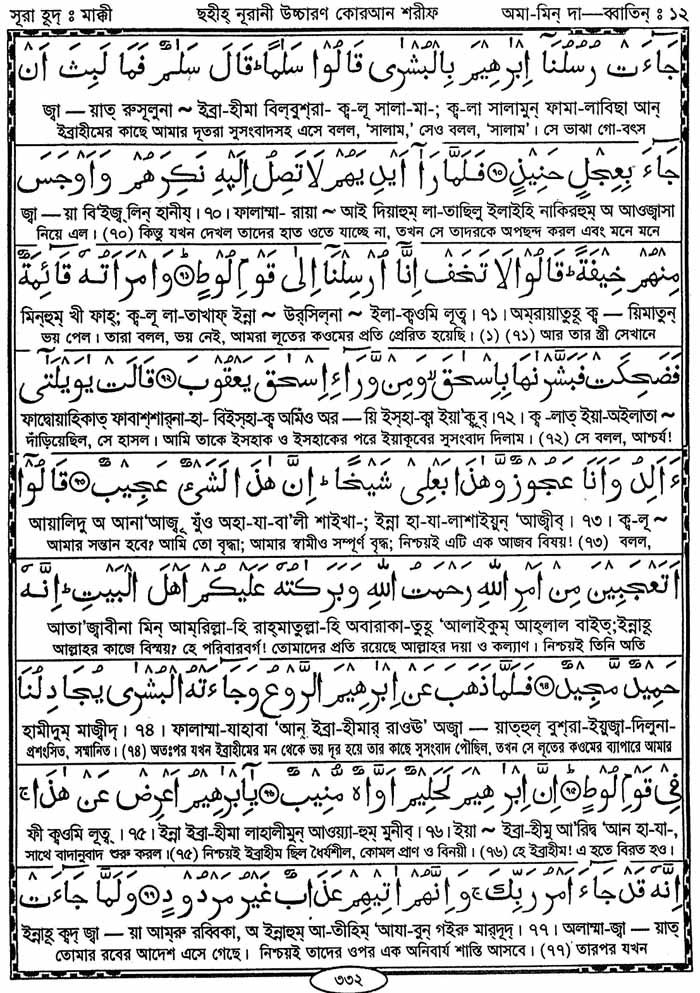 সূরা হূদ্ : মাক্কী ছহীহ্ নূরানী উচ্চারণ কোরআন শরীফ অমা-মিন্ দা—ব্বাতিন্ : ১২
جَآءَتْ رُسُلُنَآ اِبْرٰهِيْمَ بِالْبُشْرٰى قَالُوْا سَلٰمًا ؕ قَالَ سَلٰمٌ فَمَا لَبِثَ اَنْ
জ্বা — য়াত্ রুসুলুনা ~ ইব্রা-হীমা বিল্বুশ্রা- ক্ব-লূ সালা-মা-; ক্ব-লা সালামুন্ ফামা-লাবিছা আন্
ইব্রাহীমের কাছে আমার দূতরা সুসংবাদসহ এসে বলল, 'সালাম,' সেও বলল, 'সালাম'। সে ভাঝা গো-বৎস
جَآءَ بِعِجْلٍ حَنِيْذٍ ﴿۶۹﴾ فَلَمَّا رَاٰۤ اَيْدِيَهُمْ لَا تَصِلُ اِلَيْهِ نَكِرَهُمْ وَاَوْجَسَ
জ্বা — য়া বি'ইজ্ব্লিন্ হানীয্। ৭০। ফালাম্মা- রায়া ~ আই দিয়াহুম্ লা-তাছিলু ইলাইহি নাকিরহুম্ অ আওজ্বাসা
নিয়ে এল। (৭০) কিন্তু যখন দেখল তাদের হাত ওতে যাচ্ছে না, তখন সে তাদরকে অপছন্দ করল এবং মনে মনে
مِنْهُمْ خِيْفَةً ؕ قَالُوْا لَا تَخَفْ اِنَّآ اُرْسِلْنَآ اِلٰى قَوْمِ لُوْطٍ ﴿۷۰﴾ وَامْرَاَتُهٗ قَآئِمَةٌ
মিন্হুম্ খী ফাহ্; ক্ব-লূ লা-তাখাফ্ ইন্না ~ উর্সিল্না ~ ইলা-ক্বওমি লূত্ব্। ৭১। অম্রায়াতুহূ ক্ব — য়িমাতুন্
ভয় পেল। তারা বলল, ভয় নেই, আমরা লূতের কওমের প্রতি প্রেরিত হয়েছি। (১) (৭১) আর তার স্ত্রী সেখানে
فَضَحِكَتْ فَبَشَّرْنٰهَا بِاِسْحٰقَ ۙ وَمِنْ وَّرَآءِ اِسْحٰقَ يَعْقُوْبَ ﴿۷۱﴾ قَالَتْ يٰوَيْلَتٰٓى
ফাদ্বোয়াহিকাত্ ফাবাশ্শার্না-হা- বিইস্হা-ক্ব অমিঁও অর — য়ি ইস্হা-ক্ব ইয়া'কূব্। ৭২। ক্ব -লাত্ ইয়া-অইলাতা ~
দাঁড়িয়েছিল, সে হাসল। আমি তাকে ইসহাক ও ইসহাকের পরে ইয়াকূবের সুসংবাদ দিলাম। (৭২) সে বলল, আশ্চর্য!
ءَاَلِدُ وَاَنَا عَجُوْزٌ وَّهٰذَا بَعْلِيْ شَيْخًا ؕ اِنَّ هٰذَا لَشَيْءٌ عَجِيْبٌ ﴿۷۲﴾ قَالُوْٓا
আয়ালিদু অ আনা'আজ্বূ যুঁও অহা-যা-বা'লী শাইখা-; ইন্না হা-যা-লাশাইয়ুন্ 'আজ্বীব্। ৭৩। ক্ব-লূ ~
আমার সন্তান হবে? আমি তো বৃদ্ধা; আমার স্বামীও সম্পূর্ণ বৃদ্ধ; নিশ্চয়ই এটি এক আজব বিষয়! (৭৩) বলল,
اَتَعْجَبِيْنَ مِنْ اَمْرِ اللّٰهِ رَحْمَتُ اللّٰهِ وَبَرَكٰتُهٗ عَلَيْكُمْ اَهْلَ الْبَيْتِ ؕ اِنَّهٗ
আতা'জ্বাবীনা মিন্ আম্রিল্লা-হি রাহ্মাতুল্লা-হি অবারাকা-তুহূ 'আলাইকুম্ আহ্লাল বাইত্;ইন্নাহূ
আল্লাহর কাজে বিস্ময়? হে পরিবারবর্গ! তোমাদের প্রতি রয়েছে আল্লাহর দয়া ও কল্যাণ। নিশ্চয়ই তিনি অতি
حَمِيْدٌ مَّجِيْدٌ ﴿۷۳﴾ فَلَمَّا ذَهَبَ عَنْ اِبْرٰهِيْمَ الرَّوْعُ وَجَآءَتْهُ الْبُشْرٰى يُجَادِلُنَا
হামীদুম্ মাজ্বীদ্। ৭৪। ফালাম্মা-যাহাবা 'আন্ ইব্রা-হীমার্ রাওউ' অজ্বা — য়াত্হুল্ বুশ্রা-ইয়ুজ্বা-দিলুনা-
প্রশংসিত, সম্মানিত। (৭৪) অতঃপর যখন ইব্রাহীমের মন থেকে ভয় দূর হয়ে তার কাছে সুসংবাদ পৌঁছিল, তখন সে লূতের কওমের ব্যাপারে আমার
فِيْ قَوْمِ لُوْطٍ ﴿۷۴﴾ اِنَّ اِبْرٰهِيْمَ لَحَلِيْمٌ اَوَّاهٌ مُّنِيْبٌ ﴿۷۵﴾ يٰٓاِبْرٰهِيْمُ اَعْرِضْ عَنْ هٰذَا ۚ
ফী ক্বওমি লূত্ব্। ৭৫। ইন্না ইব্রা-হীমা লাহালীমুন্ আওয়্যা-হুম্ মুনীব্। ৭৬। ইয়া ~ ইব্রা-হীমু আ'রিদ্ব্ 'আন হা-যা-,
সাথে বাদানুবাদ শুরু করল।(৭৫) নিশ্চয়ই ইব্রাহীম ছিল ধৈর্যশীল, কোমল প্রাণ ও বিনয়ী। (৭৬) হে ইব্রাহীম! এ হতে বিরত হও।
اِنَّهٗ قَدْ جَآءَ اَمْرُ رَبِّكَ ۚ وَاِنَّهُمْ اٰتِيْهِمْ عَذَابٌ غَيْرُ مَرْدُوْدٍ ﴿۷۶﴾ وَلَمَّا جَآءَتْ
ইন্নাহূ ক্বদ্ জ্বা — য়া আম্রু রব্বিকা, অ ইন্নাহুম্ আ-তীহিম্ 'আযা-বুন্ গইরু মার্দূদ্। ৭৭। অলাম্মা-জ্বা — য়াত্
তোমার রবের আদেশ এসে গেছে। নিশ্চয়ই তাদের ওপর এক অনিবার্য শাস্তি আসবে। (৭৭) তারপর যখন
৩৩২